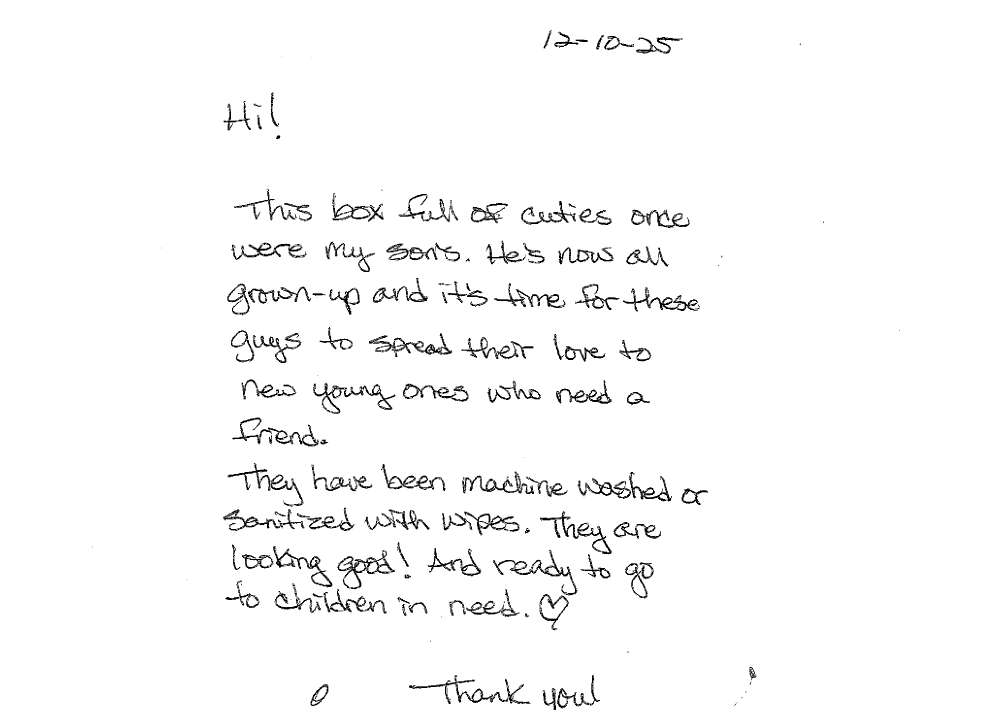 12-10-25
Hi!
This box full of cuties once
were my son's. He's now all
grown-up and it's time for these
guys to spread their love to
new young ones who need a
friend.
They have been machine washed or
sanitized with wipes. They are
looking good! And ready to go
to children in need. ♡
Thank you!